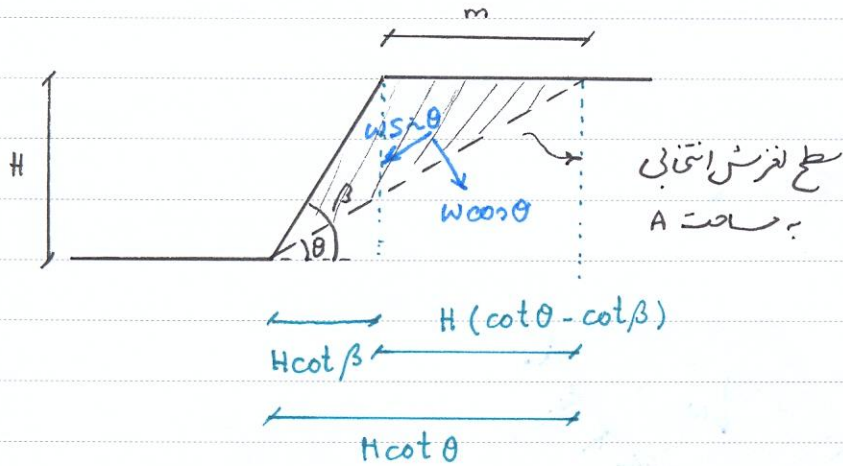 m
H
W sin θ
W cos θ
β
θ
سطح لغزش انتخابی
به مساحت A
H (cot θ - cot β)
H cot β
H cot θ